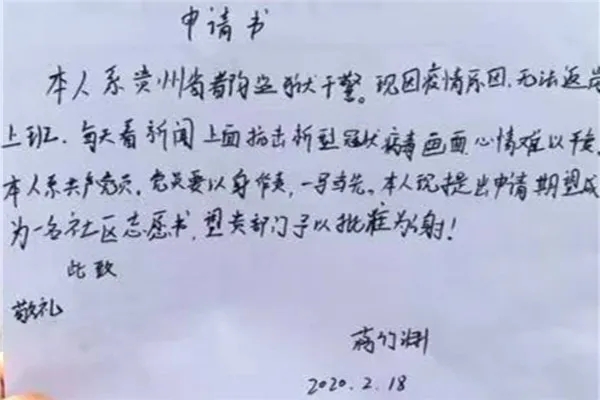 申请书
本人系贵州省都匀监狱干警。现因疫情原因,无法返岗
上班,每天看新闻上面抗击新型冠状病毒画面,心情难以平安,
本人系共产党员,党员要以身作责,一马当先。本人现提出申请期望成
为一名社区志愿书,望贵部门予以批准为谢!
此致
敬礼
蒋竹渊
2020.2.18